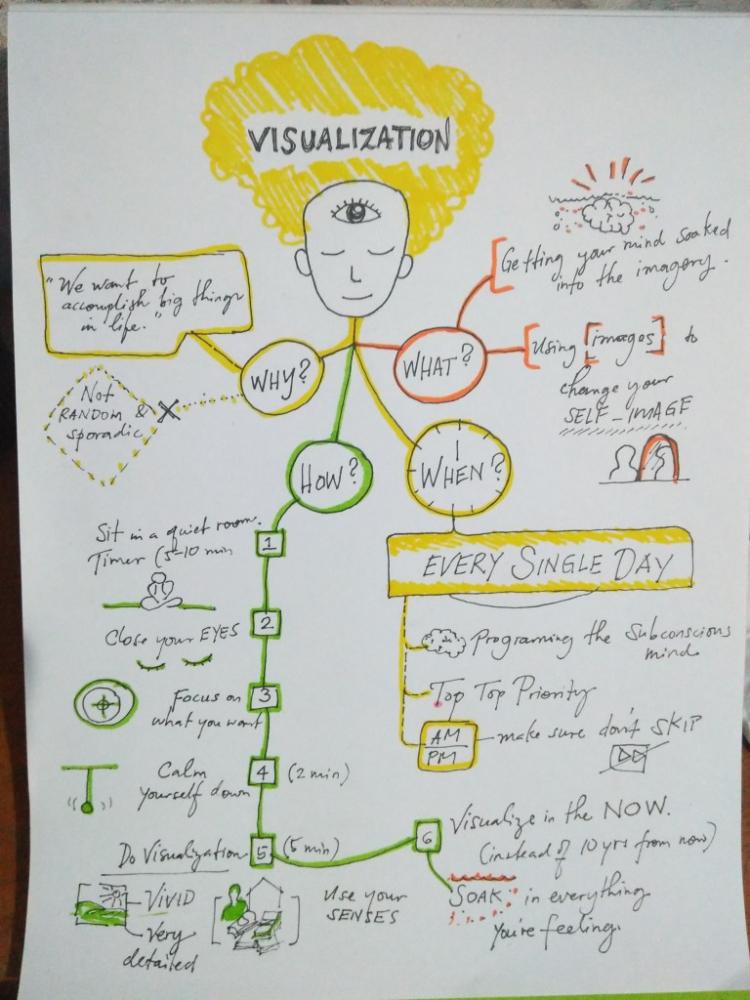 VISUALIZATION
"We want to
accomplish big things
in life."
WHY?
Not
RANDOM &
sporadic
WHAT?
Getting your mind soaked
into the imagery.
Using [images] to
change your
SELF-IMAGE
HOW?
1
Sit in a quiet room.
Timer (5-10 min
2
Close your EYES
3
Focus on
what you want
4
Calm (2 min)
yourself down
5
Do Visualization (5 min)
VIVID
Very
detailed
Use your
SENSES
6
Visualize in the NOW.
(instead of 10 yrs from now)
SOAK in everything
You're feeling.
WHEN?
EVERY SINGLE DAY
Programing the Subconscious
mind
Top Top Priority
AM
PM
make sure don't SKIP